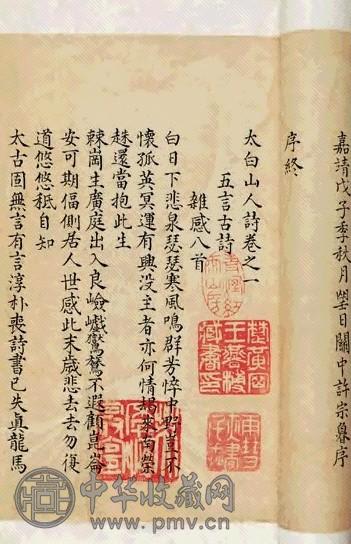 嘉靖戊子季秋月望日關中許宗魯序
序終
太白山人詩卷之一
五言古詩
雜感八首
白日下悲泉瑟瑟寒風鳴群芳悴中野蕙不
懷孤英冥運有興没主者亦何情朅來南榮
趎還當抱此生
棘崗生廣庭出入良嶮巇驚不遐顧崑崙
安可期偪側居人世感此末歲悲去去勿復
道悠悠秪自知
太古固無言有言淳朴喪詩書已失真龍馬
中华收藏网
www.pmv.cn